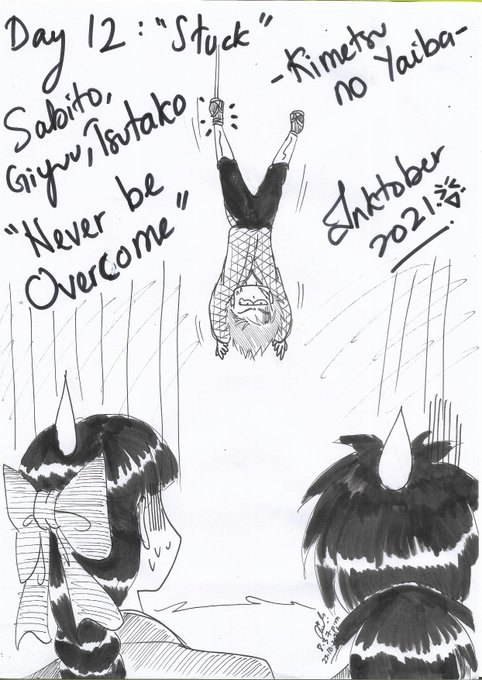 Day 12: "Stuck"
-Kimetsu
no Yaiba-
Sabito,
Giyuu, Tsutako
"Never be
Overcome"
Inktober
2021